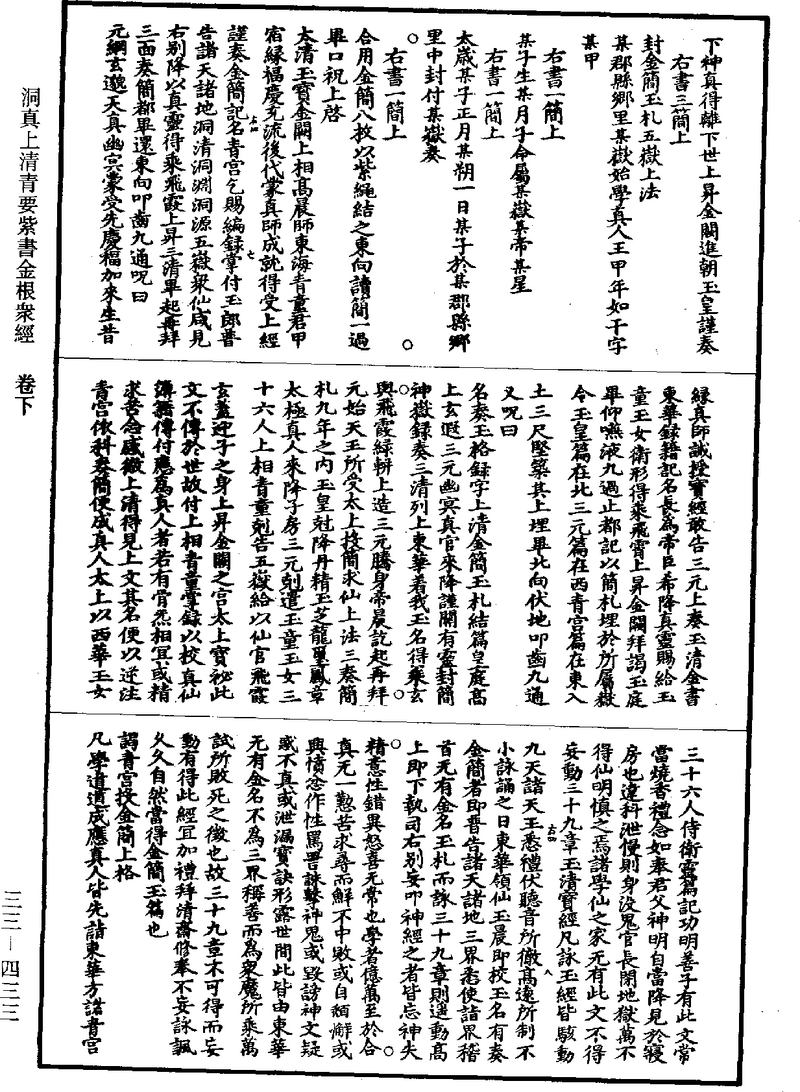 下神真得離下世上昇金闕進朝玉皇謹奏
右書三簡上
封金簡玉札五嶽上法
某郡縣鄉里某嶽始學真人王甲年如干字
某甲
右書一簡上
某子生某月子命屬某嶽某帝某星
右書一簡上
太歲某子正月某朔一日某子於某郡縣鄉
里中封付某嶽奏
右書一簡上
合用金簡八枚以紫繩結之東向讀簡一過
畢口祝上啓
太清玉寶金闕上相高晨師東海青童君甲
宿緣福慶充流後代蒙真師成就得受上經
謹奏金簡記名青宮乞賜編錄掌付玉郎普
告諸天諸地洞清洞淵洞源五嶽衆仙咸見
右別降以真靈得乘飛霞上昇三清畢起再拜
三面奏簡都畢還東向叩齒九通呪曰
元綱玄邈天真幽冥蒙受先慶福加來生昔
緣真師誠授寶經敢告三元上奏玉清金書
東華錄籍記名長為帝臣希降真靈賜給玉
童玉女衛形得乘飛霄上昇金闕拜謁玉庭
畢仰嚥液九過止都記以簡札埋於所屬嶽
令玉皇篇在北三元篇在西青宮篇在東入
土三尺堅築其上埋畢北向伏地叩齒九通
又呪曰
名奏玉格錄字上清金簡玉札結篇皇庭高
上玄遐三元幽冥真官來降謹關有靈封簡
神嶽錄奏三清列上東華著我玉名得乘玄
輿飛霞綠軿上造三元騰身帝晨訖起再拜
元始天王所受太上投簡求仙上法三奏簡
札九年之內玉皇剋降丹精玉芝龍璽鳳章
太極真人來降子房三元剋遣玉童玉女三
十六人上相青童剋告五嶽給以仙官飛霞
玄蓋迎子之身上昇金闕之宮太上寶祕此
文不傳於世故付上相青童掌錄以校真仙
簿籍傳付應為真人者若有骨炁相宜或精
求苦念感徹上清得見上文其名便以逆注
青宮依科奏簡便成真人太上以西華玉女
三十六人侍衛靈篇記功明善子有此文常
當燒香禮念如奉君父神明自當降見於寢
房也違科泄慢則身沒鬼官長閉地獄萬不
得仙明慎之焉諸學仙之家无有此文不得
妄動三十九章玉清寶經凡詠玉經皆駭動
九天諸天王悉禮伏聽音所徹高遠所制不
小詠誦之日東華領仙玉晨即校玉名有奏
金簡者即普告諸天諸地三界悉使詣界稽
首无有金名玉札而詠三十九章則遏動高
上即下執司右別妄叩神經之者皆忘神失
精意性錯異怒喜无常也學者億萬至於合
真无一懃苦求尋而鮮不中敗或自頹癈或
興憤忿作性罵詈誅擊神鬼或毀謗神文疑
或不真或泄漏寶訣形露世間此皆由東華
无有金名不為三界稱善而為衆魔所乘萬
試所敗死之徵也故三十九章不可得而妄
動有得此經宜加禮拜清齋修奉不妄詠諷
久久自然當得金簡玉篇也
謁青宮投金簡上格
凡學道道成應真人皆先詣東華方諸青宮
洞真上清青要紫書金根衆經 卷下
三三—四三三